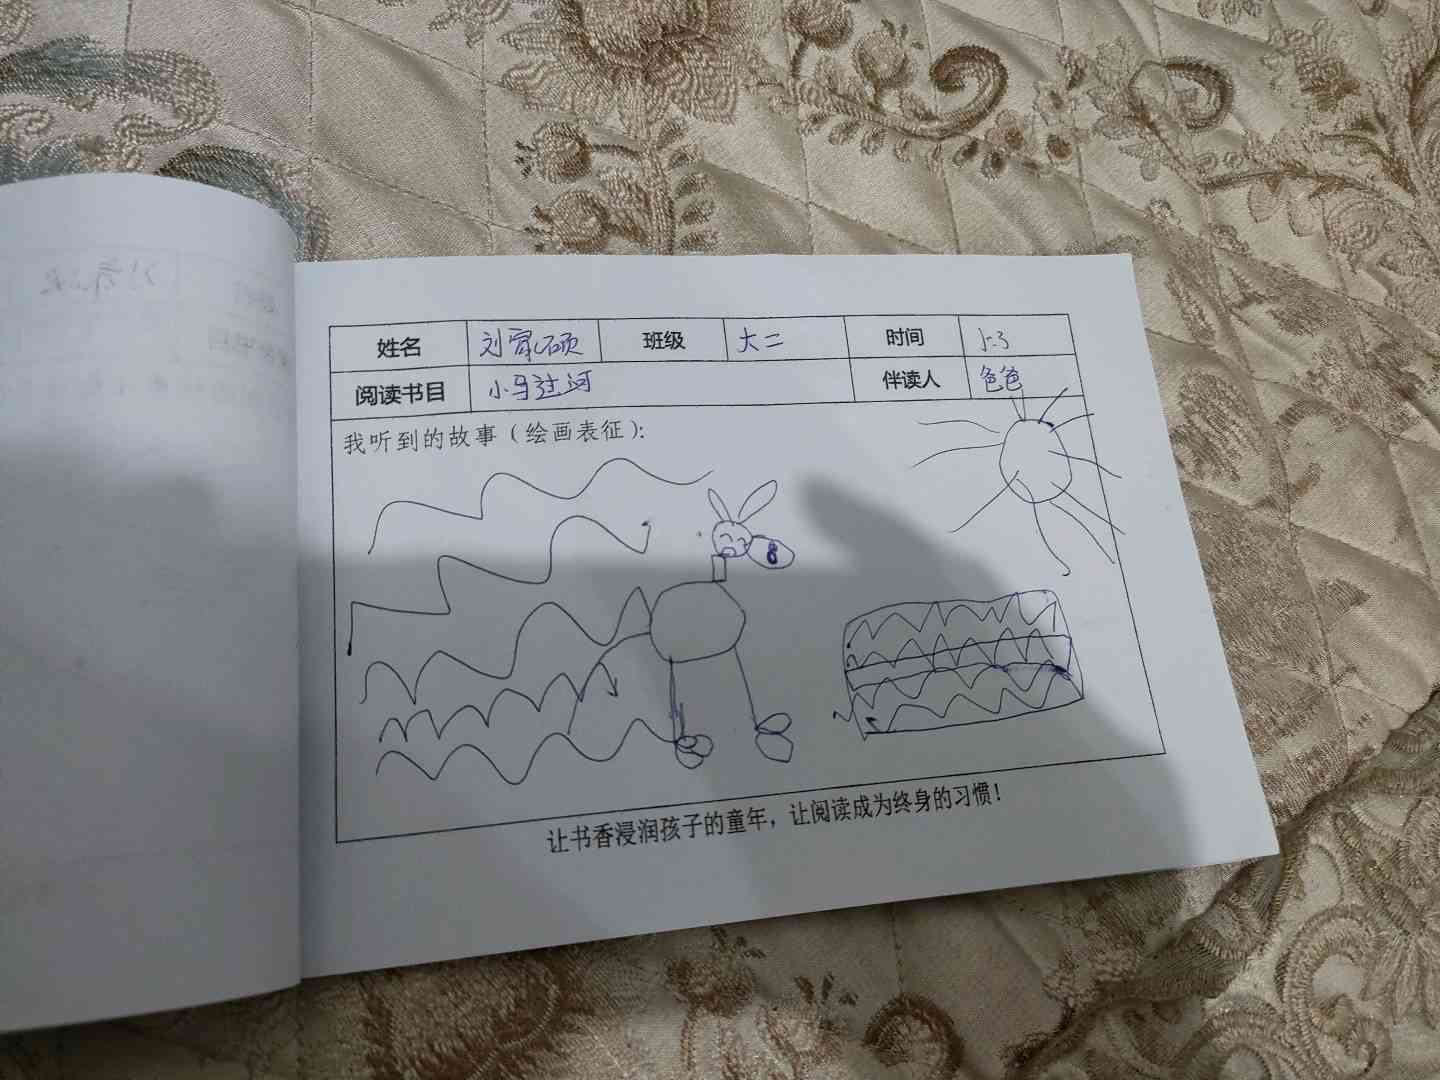 姓名 刘家硕 班级 大二 时间 1.3
阅读书目 小马过河 伴读人 爸爸
我听到的故事（绘画表征）：
8
让书香浸润孩子的童年，让阅读成为终身的习惯！